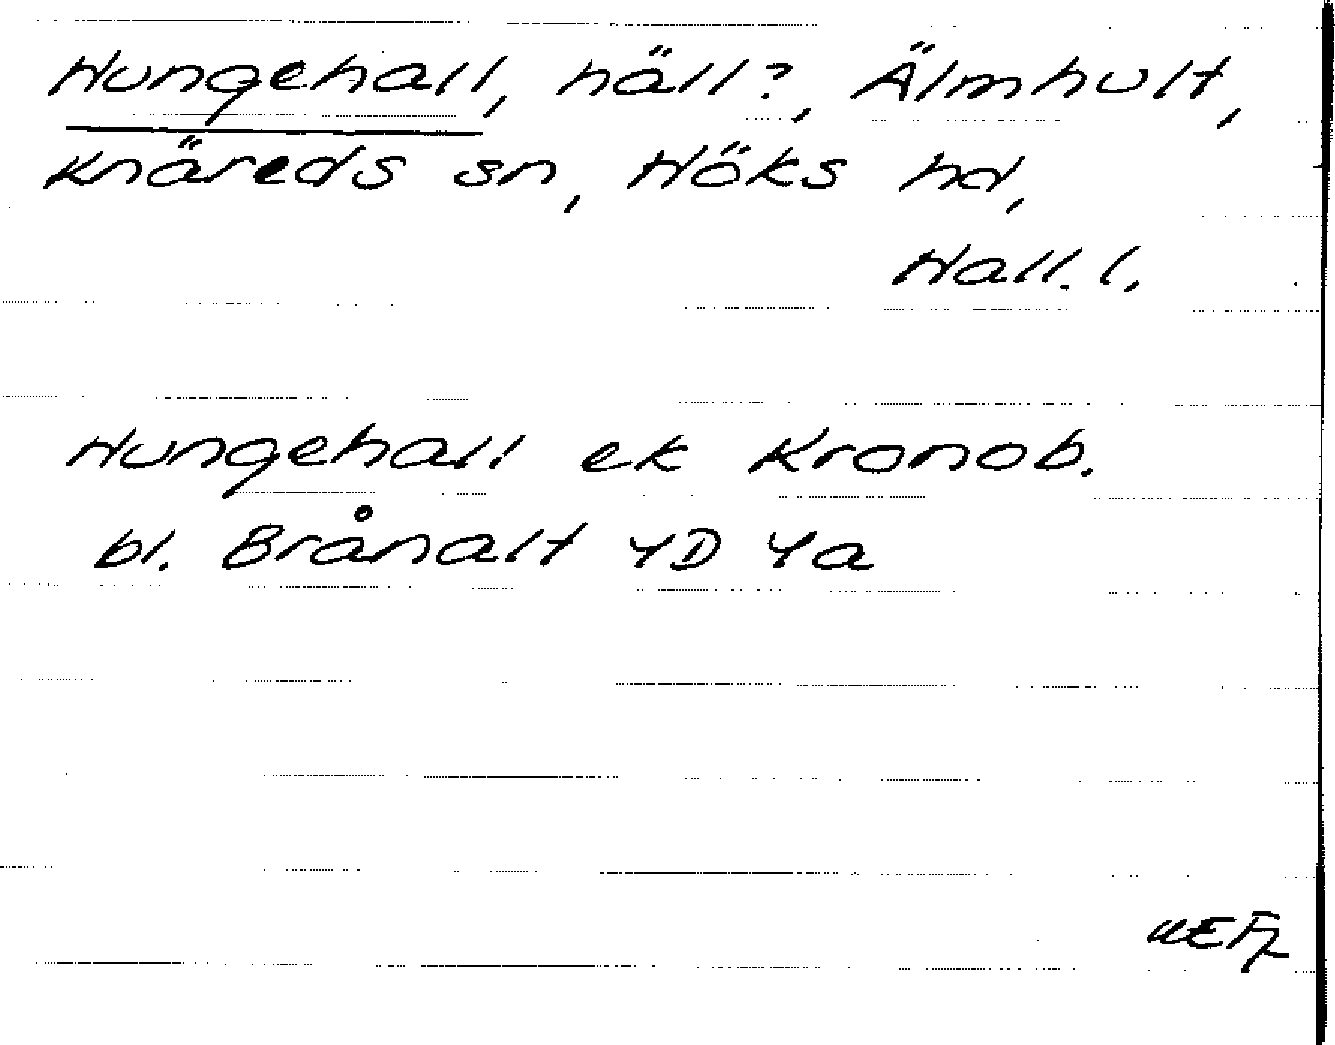 Hungehall, häll?, Älmhult,
Knäreds sn, Höks hd,
Hall. l.
Hungehall ek Kronob.
bl. Brånalt 4D 4a